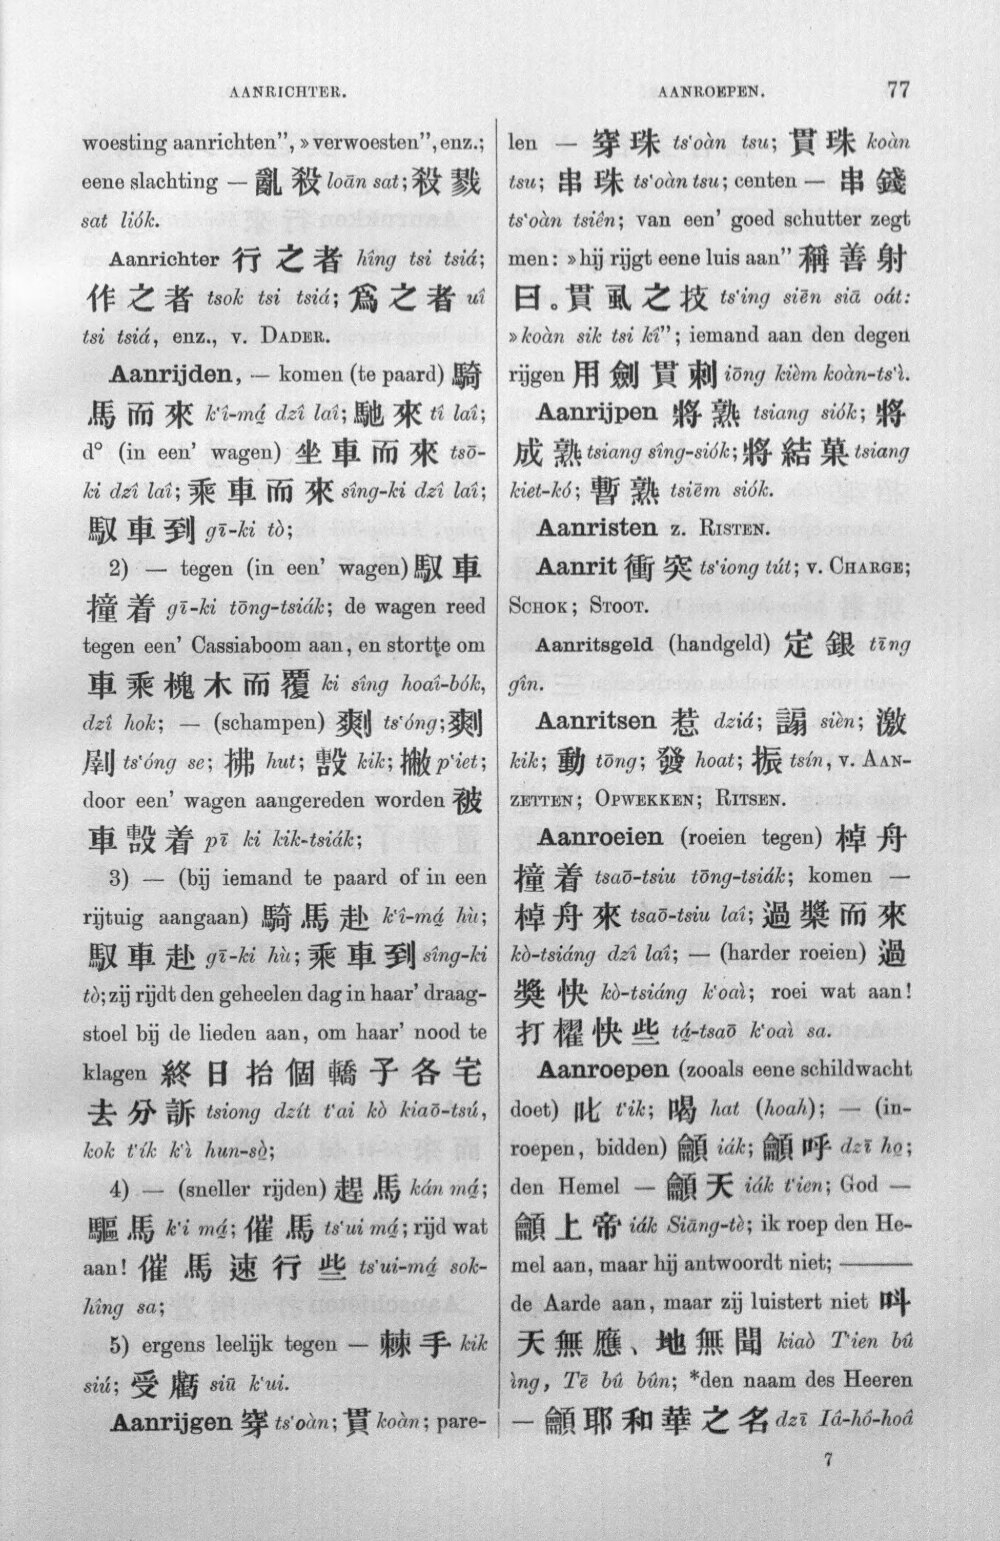 AANRICHTER.
AANROEPEN.
77
woesting aanrichten”, » verwoesten”, enz.;
eene slachting — 亂殺 loān sat; 殺戮
sat liók.
Aanrichter 行之者 hîng tsi tsiá;
作之者 tsok tsi tsiá; 爲之者 uî
tsi tsiá, enz., v. DADER.
Aanrijden, — komen (te paard) 騎
馬而來 k‘î-má̤ dzî laî; 馳來 tî laî;
d° (in een’ wagen) 坐車而來 tsō-
ki dzî laî; 乘車而來 sîng-ki dzî laî;
馭車到 gī-ki tò;
2) — tegen (in een’ wagen) 馭車
撞着 gī-ki tōng-tsiák; de wagen reed
tegen een’ Cassiaboom aan, en stortte om
車乘槐木而覆 ki sîng hoaî-bók,
dzî hok; — (schampen) 剠 ts‘óng;
ts‘óng se; 拂 hut; 毄 kik; 撇 p‘iet;
door een’ wagen aangereden worden 被
車毄着 pī ki kik-tsiák;
3) — (bij iemand te paard of in een
rijtuig aangaan) 騎馬赴 k‘î-má̤ hù;
馭車赴 gī-ki hù; 乘車到 sîng-ki
tò; zij rijdt den geheelen dag in haar’ draag-
stoel bij de lieden aan, om haar’ nood te
klagen 終日抬個轎子各宅
去分訴 tsiong dzít t‘ai kò kiaō-tsú,
kok t‘ík k‘ì hun-sò̤;
4) — (sneller rijden) 趕馬 kán má̤;
驅馬 k‘i má̤; 催馬 ts‘ui má̤; rijd wat
aan! 催馬速行些 ts‘ui-má̤ sok-
hîng sa;
5) ergens leelijk tegen — 棘手 kik
siú; 受虧 siū k‘ui.
Aanrijgen 穿 ts‘oàn; 貫 koàn; pare-
len — 穿珠 ts‘oàn tsu; 貫珠 koàn
tsu; 串珠 ts‘oàn tsu; centen — 串錢
ts‘oàn tsiên; van een’ goed schutter zegt
men: » hij rijgt eene luis aan” 稱善射
曰。貫虱之技 ts‘ing siēn siā oát:
» koàn sik tsi kî”; iemand aan den degen
rijgen 用劍貫刺 iōng kièm koàn-ts‘ì.
Aanrijpen 將熟 tsiang siók; 將
成熟 tsiang sîng-siók; 將結菓 tsiang
kiet-kó; 暫熟 tsiēm siók.
Aanristen z. RISTEN.
Aanrit 衝突 ts‘iong tút; v. CHARGE;
SCHOK; STOOT.
Aanritsgeld (handgeld) 定銀 tīng
gîn.
Aanritsen 惹 dziá; 謆 sièn; 激
kik; 動 tōng; 發 hoat; 振 tsín, v. AAN-
ZETTEN; OPWEKKEN; RITSEN.
Aanroeien (roeien tegen) 棹舟
撞着 tsaō-tsiu tōng-tsiák; komen —
棹舟來 tsaō-tsiu laî; 過槳而來
kò-tsiáng dzî laî; — (harder roeien) 過
槳快 kò-tsiáng k‘oaì; roei wat aan!
打櫂快些 tá̤-tsaō k‘oaì sa.
Aanroepen (zooals eene schildwacht
doet) 叱 t‘ik; 喝 hat (hoah); — (in-
roepen, bidden) 籲 iák; 籲呼 dzī ho̤;
den Hemel — 籲天 iák t‘ien; God —
籲上帝 iák Siāng-tè; ik roep den He-
mel aan, maar hij antwoordt niet; ———
de Aarde aan, maar zij luistert niet 呌
天無應、地無聞 kiaò T‘ien bû
ìng, Tē bû bûn; *den naam des Heeren
— 籲耶和華之名 dzī Iâ-hô-hoâ
7